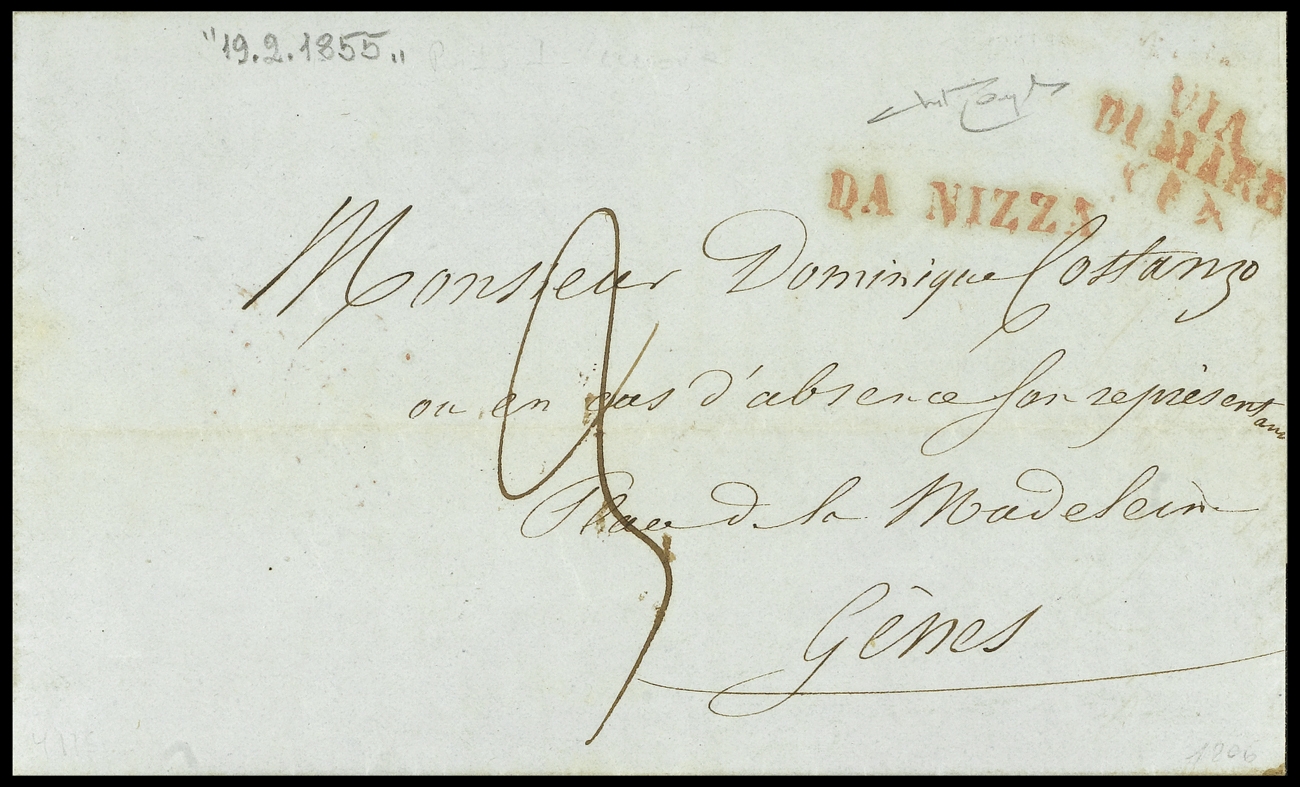 "19.2.1855"
VIA
DI MARE
DA NIZZA
Monsieur Dominique Costanzo
ou en cas d'absence son représentant
Place de la Madeleine
Gênes
1806